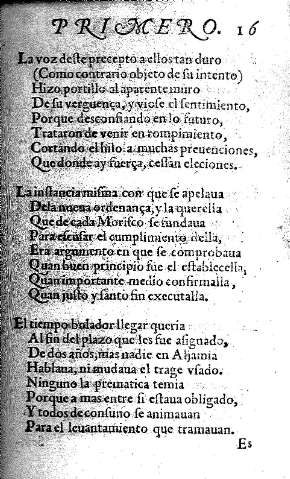 PRIMERO. 16
La voz deste precepto a ellos tan duro
(Como contrario objeto de su intento)
Hizo portillo al aparente muro
De su verguença, y viose el sentimiento,
Porque desconfiando en lo futuro,
Trataron de venir en rompimiento,
Cortando el hilo a muchas preuenciones,
Que donde ay fuerça, cessan elecciones.
La instancia misma con que se apelaua
De la nueua ordenança, y la querella
Que de cada Morisco se fundaua
Para escusar el cumplimiento della,
Era argumento en que se comprobaua
Quan buen principio fue el establecella,
Quan importante medio confirmalla,
Quan justo y santo fin executalla.
El tiempo bolador llegar queria
Al fin del plazo que les fue asignado,
De dos años, mas nadie en Aljamia
Hablaua, ni mudaua el trage vsado.
Ninguno la prematica temia
Porque a mas entre si estaua obligado,
Y todos de consuno se animauan
Para el leuantamiento que tramauan.
Es